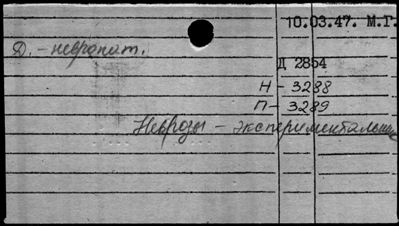 10.03.47. М.Г.
Д. - невропат.
Д 2854
Н - 3288
П - 3289
Неврозы - экспериментальные